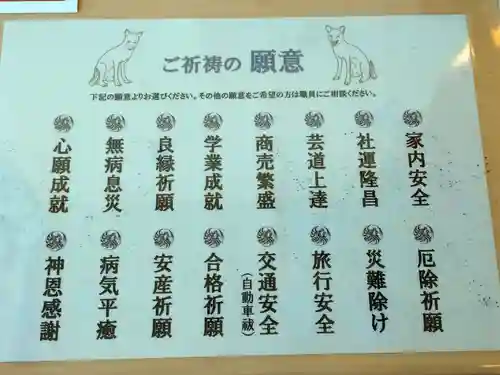 ご祈祷の 願意
下記の願意よりお選びください。その他の願意をご希望の方は職員にご相談ください。
家内安全
社運隆昌
芸道上達
商売繁盛
学業成就
良縁祈願
無病息災
心願成就
厄除祈願
災難除け
旅行安全
交通安全
(自動車祓)
合格祈願
安産祈願
病気平癒
神恩感謝